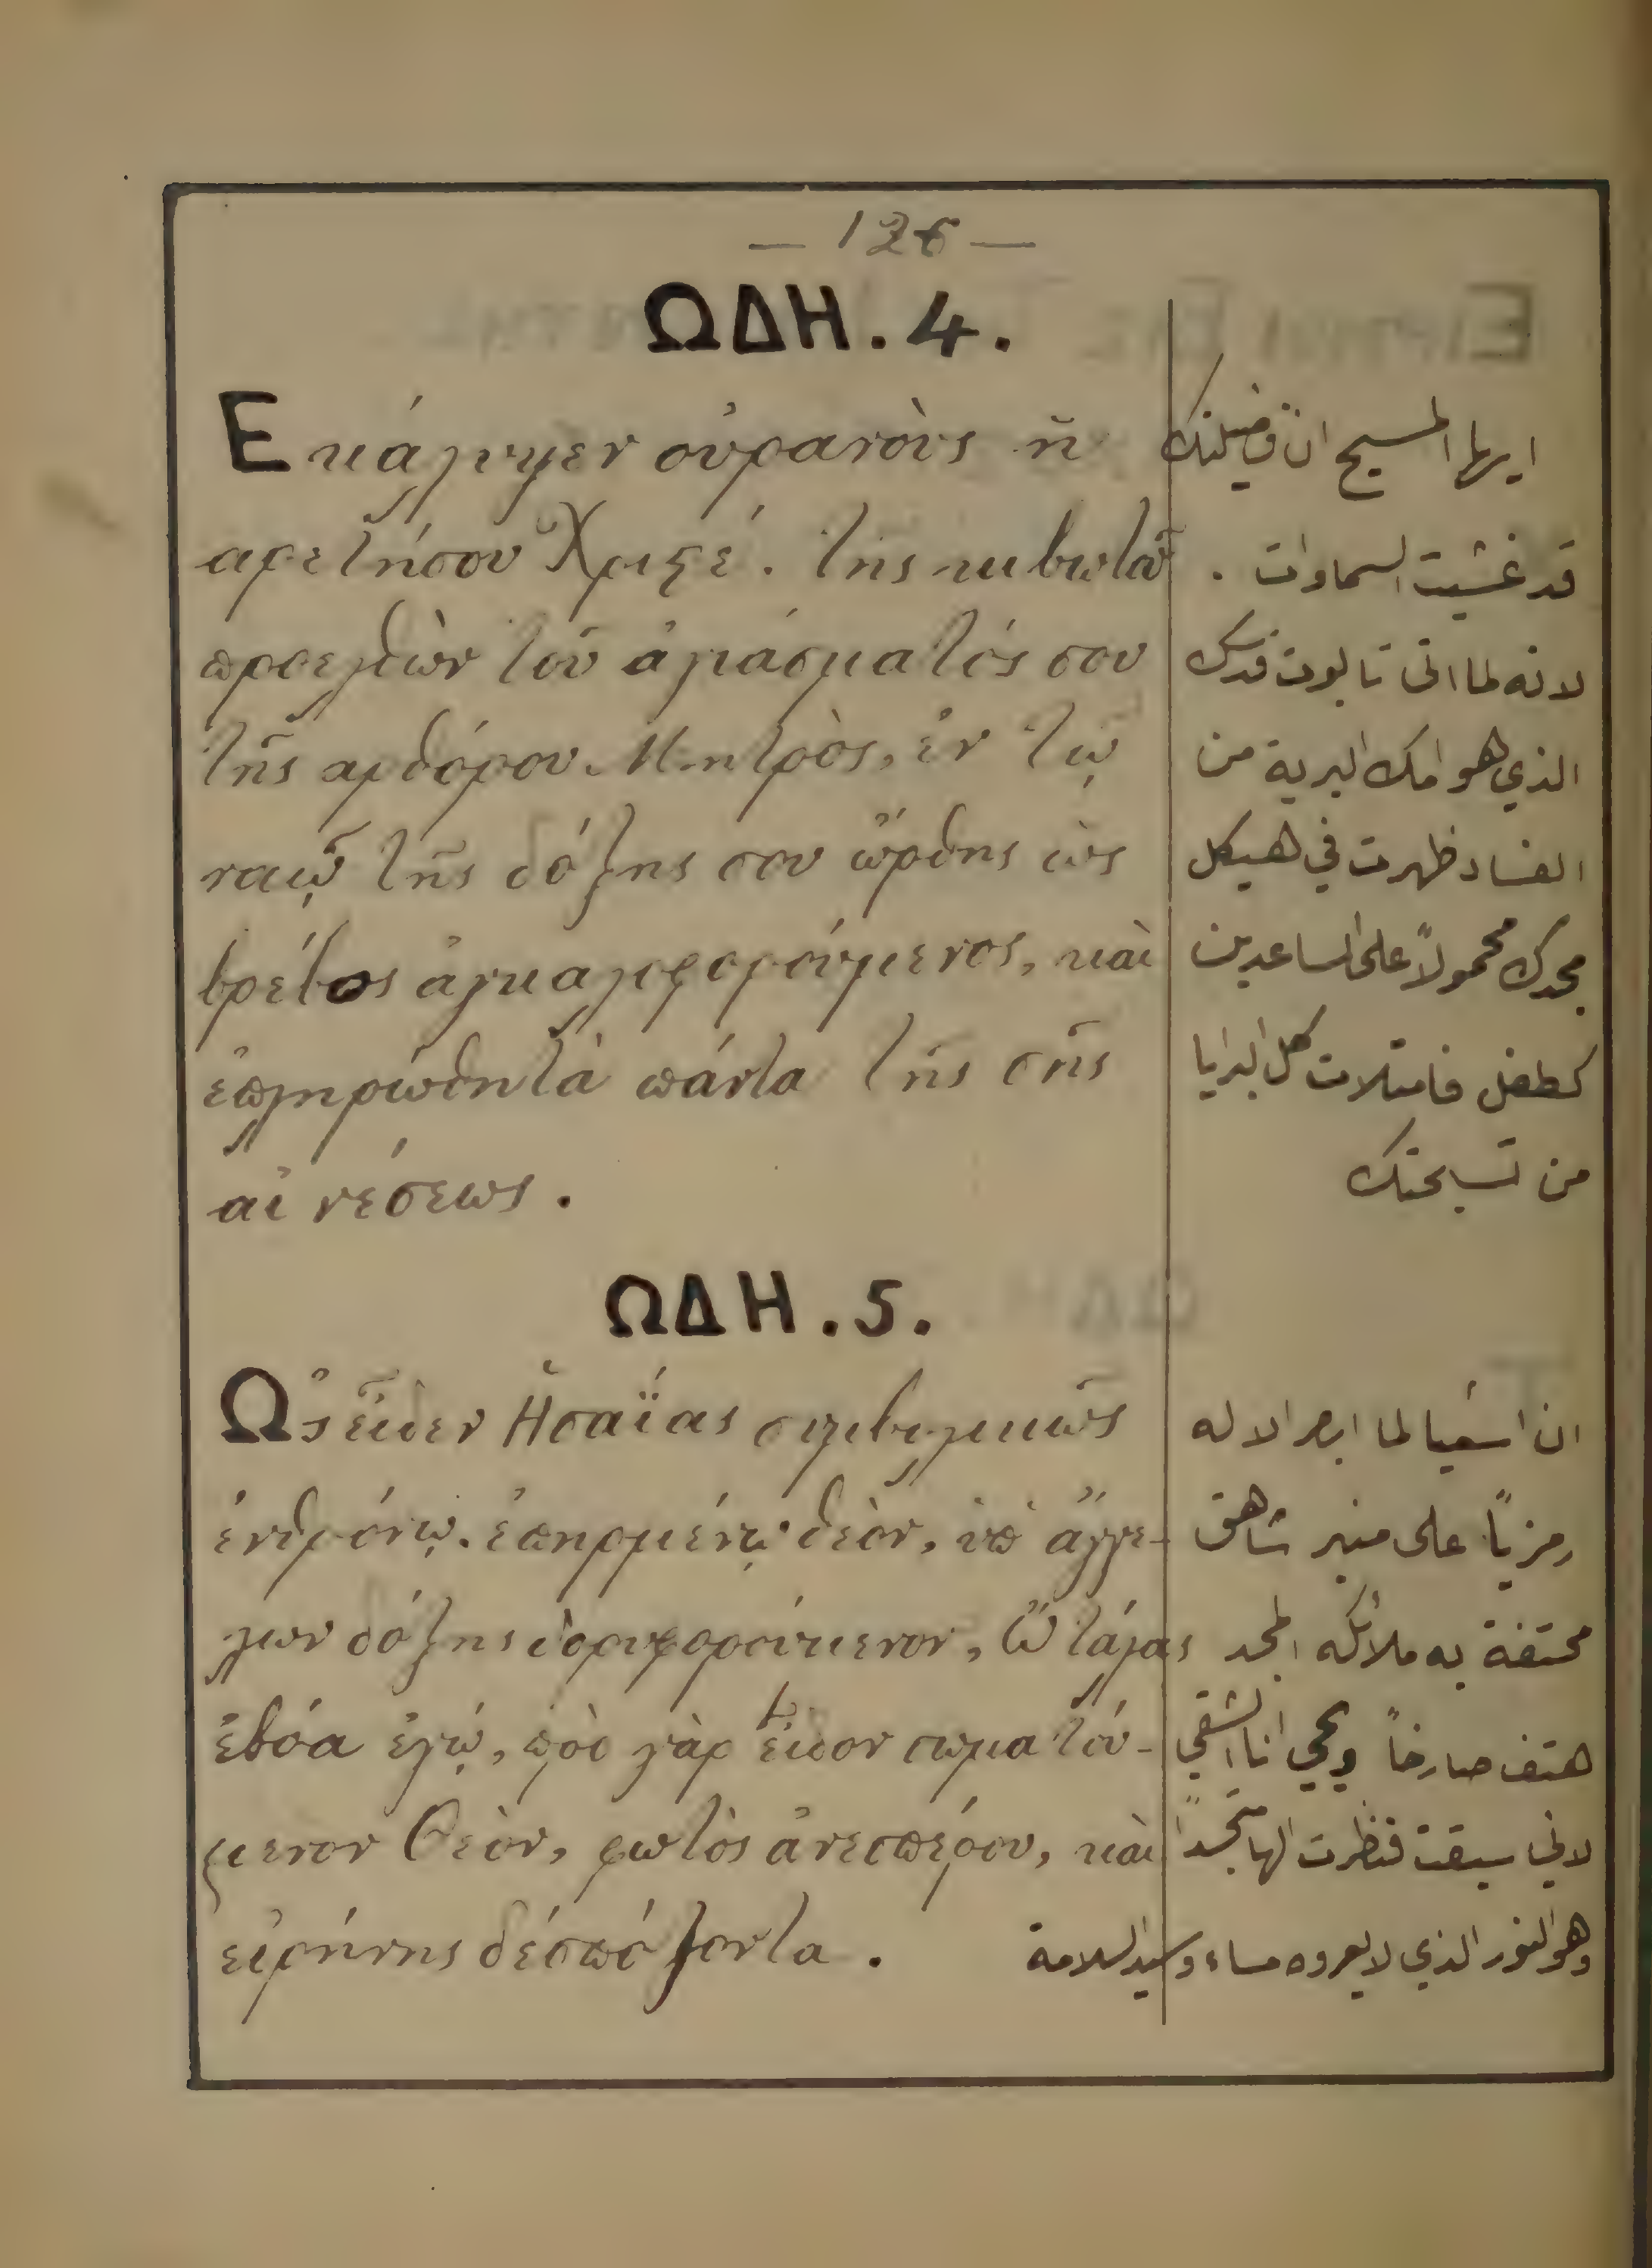 — 126 —
ΩΔΗ . 4 .
Εκάλυψεν οὐρανοὺς ἡ
αρετήσου Χριςέ . τῆς κιβωτοῦ
προελθὼν τοῦ ἁγιάσματός σου
τῆς αφθόρου Μητρὸς, ἐν τῷ
ναῷ τῆς δόξης σου ὤφθης ὡς
βρέφος ἀγκαλοφορούμενος, καὶ
επληρώθη τὰ πάντα τῆς σῆς
αἰνέσεως .
ايها المسيح ان فضيلتك
قد غشيت السماوات .
لانه لما اتى تابوت قدسك
الذي هو امك البرية من
الفساد ظهرت في هيكل
مجدك محمولاً على الساعدين
كطفل فامتلات كل البرايا
من تسبحتك
ΩΔΗ . 5 .
Ως εἶδεν Ησαΐας συμβολικῶς
ἐνθρόνῳ . ἐπηρμένῳ θεὸν, ὑπ ἀγγε-
λων δόξης δορυφορούμενον, Ὢ τάλας
ἐβόα ἐγώ, πρὸ γὰρ εἶδον σωματού-
μενον Θεὸν, φωτὸς ἀνεσπέρου, καὶ
εἰρήνης δέσπόζοντα .
ان اشعيا لما ابصر الاله
رمزياً على منبر شاهق
محتفة به ملائكه المجد
هتف صارخاً ويحي انا الشقي
لاني سبقت فنظرت الها متجسداً
وهو النور الذي لا يعروه مساء وسيد السلامة